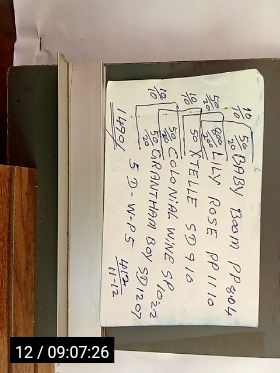 10/10 50/20 BABY BOOM PP 8.04
50/20 LILY ROSE PP 11.10
10/10 50 STELLE SD 9 10
50/20 COLONIAL WINE SP 10.22
10/10 50/20 GRANTHAM BOY SD 1207
1490/ 5 D-W-P5
11-12
12 / 09:07:26